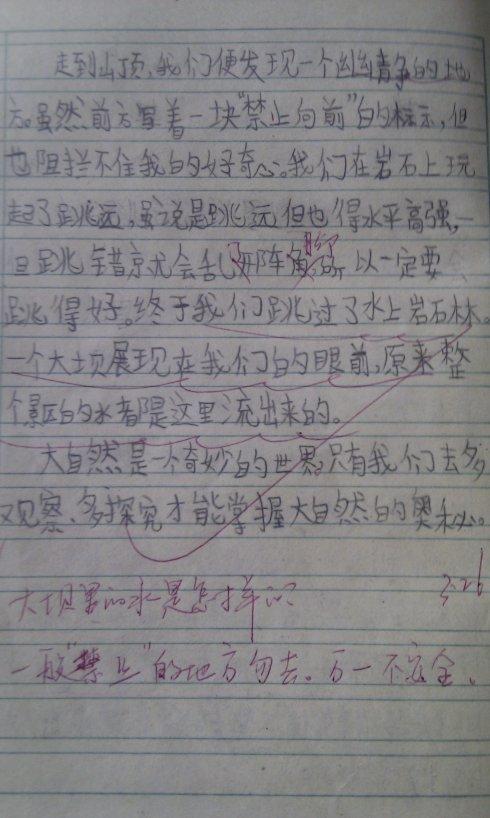 走到山顶,我们便发现一个幽幽静静的地
方。虽然前方写着一块“禁止向前”的标示,但
也阻拦不住我的好奇心。我们在岩石上玩
起了跳远,虽说是跳远但也得水平高强,一
旦跳错就会乱阵角所以一定要
跳得好。终于我们跳过了水上岩石林。
一个大坝展现在我们的眼前,原来整
个景区的水都是这里流出来的。
大自然是一个奇妙的世界。只有我们去多
观察、多探究才能掌握大自然的奥秘。
大坝里的水是怎样的 3.26
一般“禁止”的地方勿去。万一不安全。